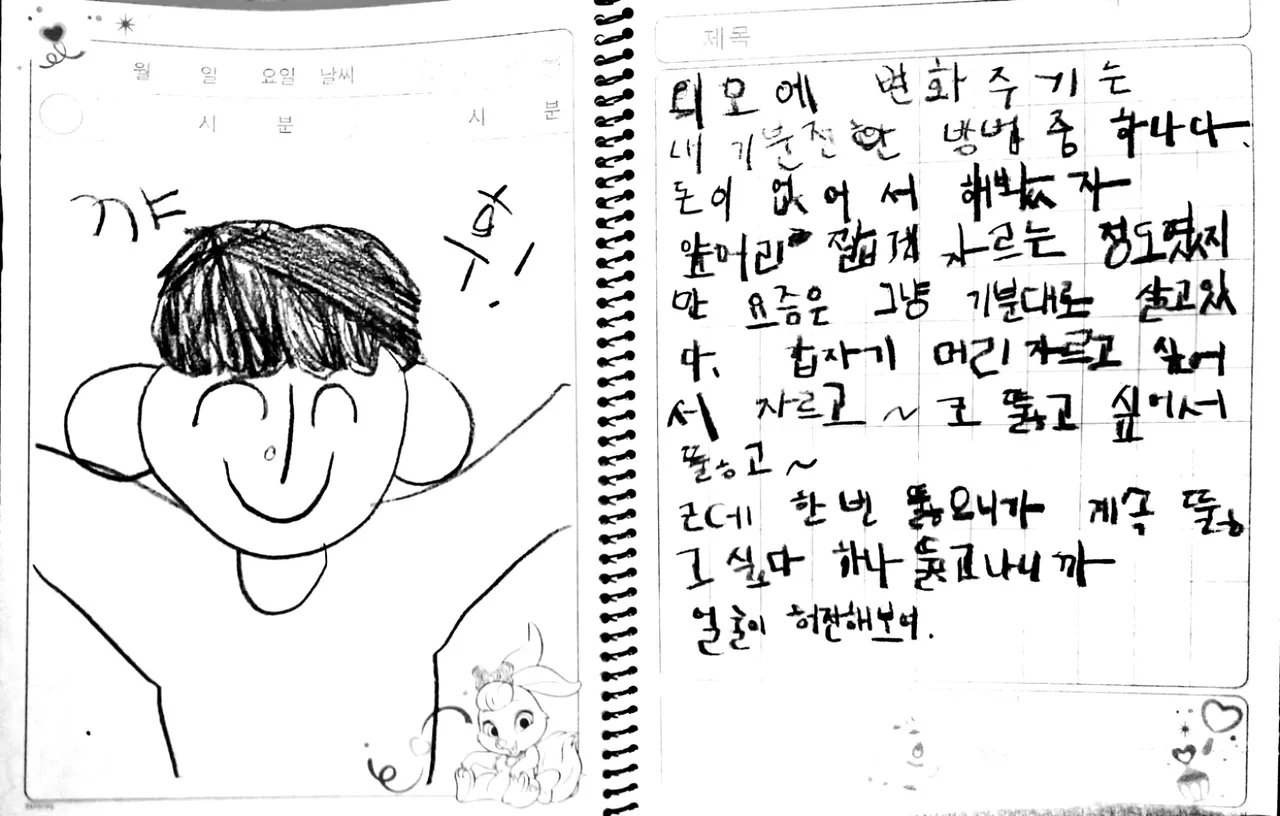 월 일 요일 날씨
시 분 시 분
꺄 핫!
제목
외모에 변화주기는
내 기분전환 방법 중 하나다.
돈이 없어서 해봤자
앞머리 짧게 자르는 정도였지
만 요즘은 그냥 기분대로 살고있
다. 갑자기 머리 자르고 싶어
서 자르고 ~ 코 뚫고 싶어서
뚫고 ~
근데 한번 뚫으니가 계속 뚫
고 싶다 하나 뚫고나니까
얼굴이 허전해보여.